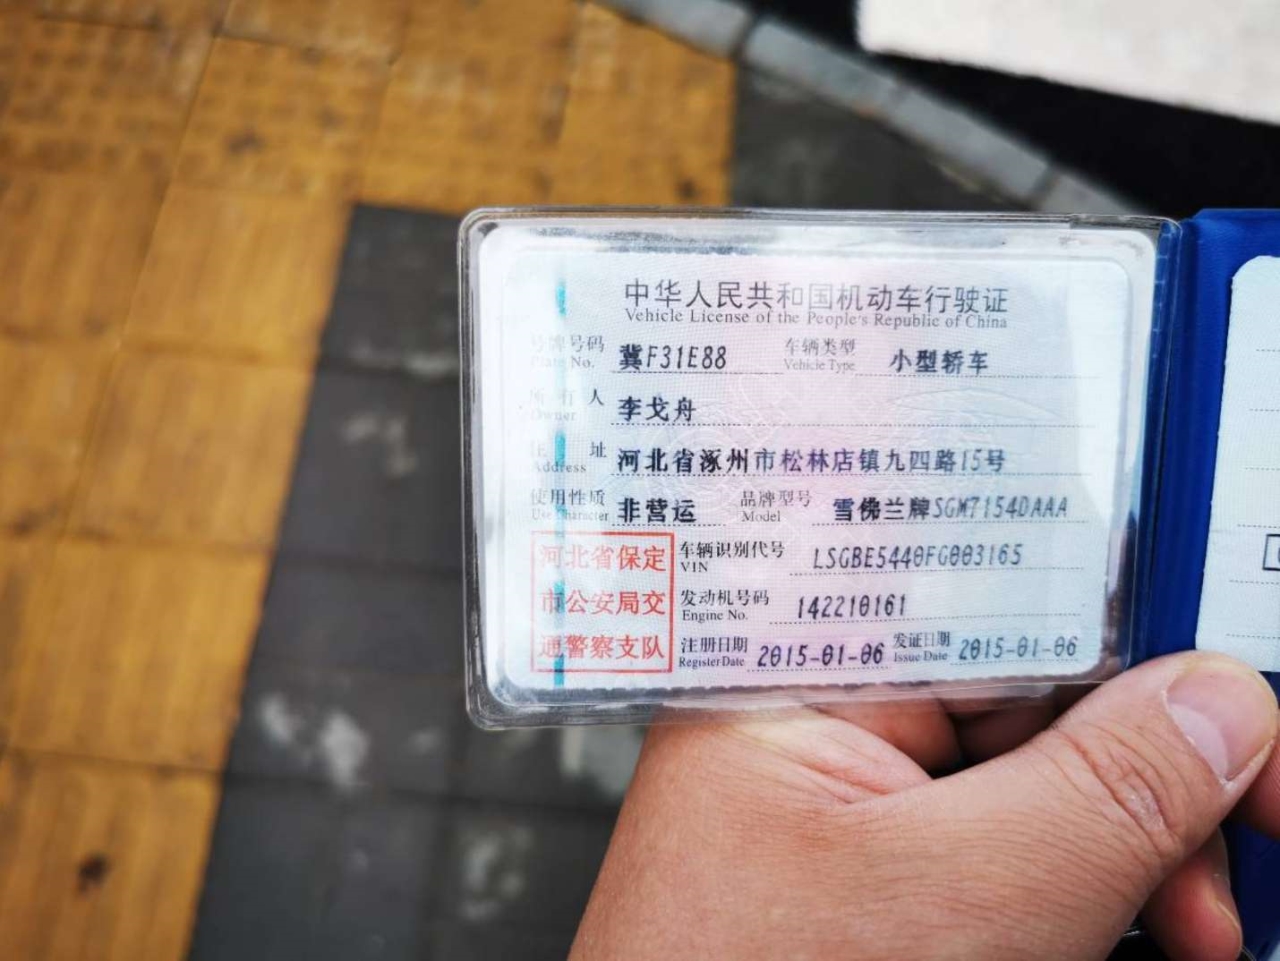 中华人民共和国机动车行驶证
Vehicle License of the People's Republic of China
号牌号码 冀F31E88 车辆类型 小型轿车
Plate No. Vehicle Type
所有人 李戈舟
Owner
住址 河北省涿州市松林店镇九四路15号
Address
使用性质 非营运 品牌型号 雪佛兰牌SGM7154DAAA
Use Character Model
河北省保定
市公安局交
通警察支队
车辆识别代号 LSGBE5440FG003165
VIN
发动机号码 142210161
Engine No.
注册日期 2015-01-06 发证日期 2015-01-06
Register Date Issue Date